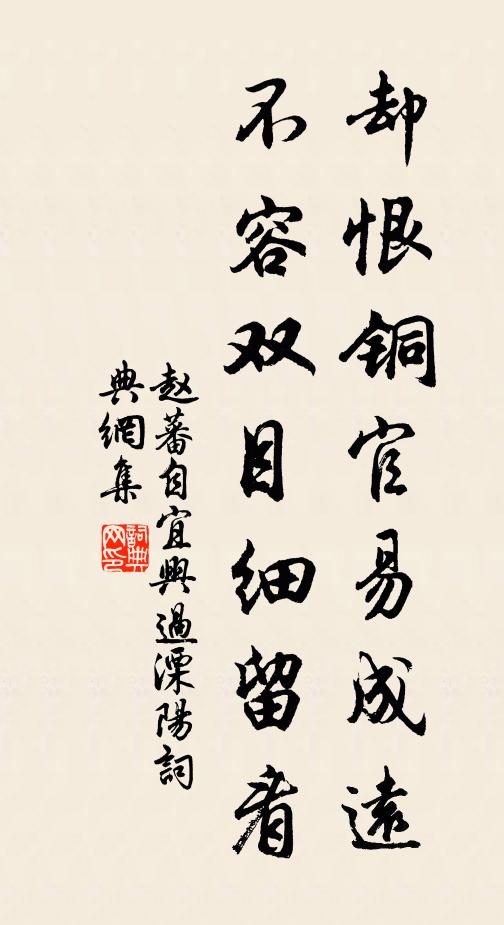 却恨铜官易成遠
不容双目细留看
赵蕃自宜興過溧陽詞
典網集
詞典网印